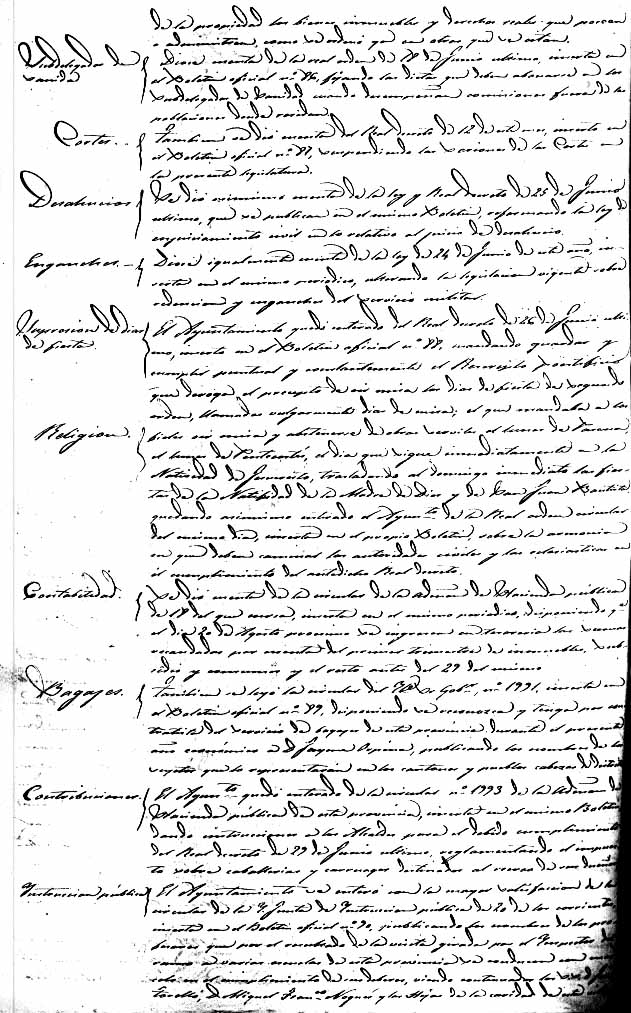 de la propiedad los bienes inmuebles y derechos reales que posean
o administren, como se ordenó que en obras que se citan.
Subdelegados de
sanidad
Diose cuenta de la real orden de 18 de Junio ultimo, inserta en
el Boletin oficial nº 86, fijando las dietas que deben abonarse a los
Subdelegados de Sanidad cuando desempeñan comisiones fuera de las
poblaciones donde residen.
Cortes.
Tambien se dió cuenta del Real decreto de 12 de este mes, inserto en
el Boletin oficial nº 87, suspendiendo las sesiones de las Cortes en
la presente legislatura.
Desahucios
Se dió asimismo cuenta de la ley y Real decreto de 25 de Junio
ultimo, que se publican en el mismo Boletin, reformando la ley de
enjuiciamiento civil en lo relativo al juicio de desahucio.
Enganches.
Diose igualmente cuenta de la ley de 24 de Junio de este año, in-
serta en el mismo periodico, alterando la legislacion vigente sobre
redencion y enganches del servicio militar.
Supresion de dias
de fiesta.
El Ayuntamiento quedó enterado del Real decreto de 26 de Junio ulti-
mo, inserto en el Boletin oficial nº 88, mandando guardar y
cumplir puntual y constantemente el Rescripto pontificio
que deroga el precepto de oir misa los dias de fiesta de segundo
orden, llamados vulgarmente dias de misa; el que mandaba a los
fieles oir misa y abstenerse de obras serviles el lunes de Pascua,
el lunes de Pentecostes, el dia que sigue inmediatamente a la
Natividad de Jesucristo, trasladando al domingo inmediato las fies-
tas de la Natividad de la Madre de Dios y de San Juan Bautista
Religion.
quedando asimismo enterado el Ayuntº de la Real orden circular
del mismo dia, inserta en el propio Boletin, sobre la armonia
en que deben caminar las autoridades civiles y las eclesiasticas en
el cumplimiento del antedicho Real decreto.
Contabilidad.
Se dió cuenta de la circular de la Admon de Hacienda pública
de 18 del que cursa, inserta en el mismo periodico, disponiendo qe
el dia 20 de Agosto proximo se ingresen en tesoreria las sumas
recaudadas por cuenta del primer trimestre de inmuebles, sub-
sidio y consumos y el resto antes del 29 del mismo.
Bagajes.
Tambien se leyó la circular del Gobº, nº 1991, inserta en
el Boletin oficial nº 89, disponiendo se reconozca y tenga por con-
tratista del servicio de bagajes de esta provincia durante el presente
año económico a D. Jayme publicando los nombres de los
sugetos que lo representarán en los cantones y pueblos cabezas de
Contribuciones.
El Ayuntº quedó enterado de la circular nº 1993 de la Admon de
Hacienda pública de esta provincia, inserta en el mismo Boletin
dando instrucciones a los Alcaldes para el debido cumplimiento
del Real decreto de 29 de Junio ultimo, reglamentando el impues-
to sobre caballerias y carruages destinados al recreo de sus dueños.
Instruccion pública
El Ayuntamiento se enteró con la mayor satisfaccion de la
circular de la Junta de Instruccion pública de 20 de los corrientes
inserta en el Boletin oficial nº 90, publicando los nombres de los pro-
fesores que por el resultado de la visita girada por el Inspector de
ramo a varias escuelas de esta provincia se conducen con
celo en el cumplimiento de sus deberes, siendo contenidos
de Miguel Francº Noguera y las Hijas de la caridad de